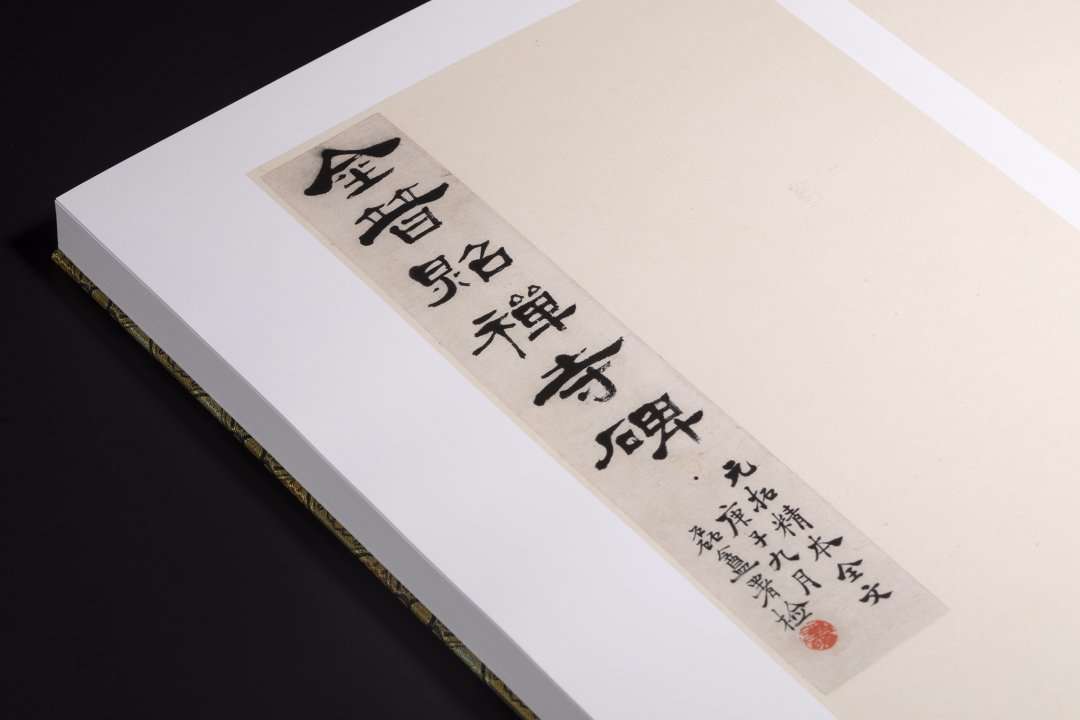 金普照禪寺碑
元拓精本全文
庚子九月
磊盦署检